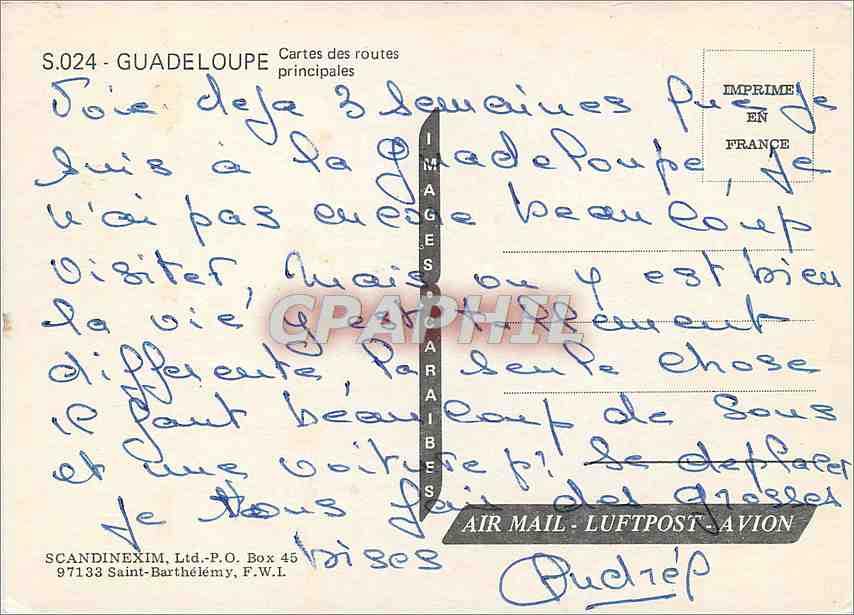 S.024 - GUADELOUPE Cartes des routes
principales
IMPRIME
EN
FRANCE
Voie deja 3 Semaines que je
suis à la Guadeloupe, je
n'ai pas encore beaucoup
visiter, mais on y est bien
la vie y est tellement
differente la seule chose
il faut béaucoup de Sous
et une voiture p? se deplacer
je vous fais des grosses
bises
Andrép
IMAGES CARAIBES
CPAPHIL
AIR MAIL - LUFTPOST - AVION
SCANDINEXIM, Ltd.-P.O. Box 45
97133 Saint-Barthélémy, F.W.I.